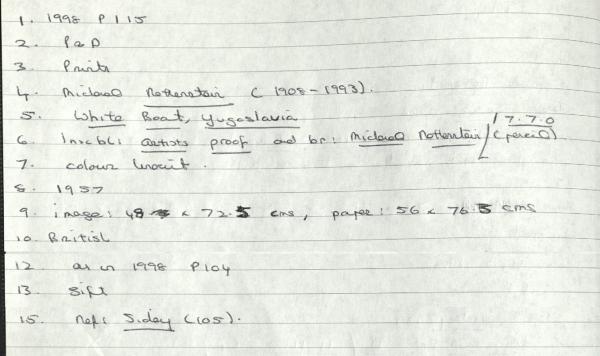 1. 1998 P 115
2. P&D
3. Prints
4. Michael Rothenstein (1908-1993).
5. White Boat, Yugoslavia
6. Ins. bl: artists proof and br: Michael Rothenstein / 17.7.0 (pencil)
7. colour linocut.
8. 1957
9. image: 48 x 72.5 cms, paper: 56 x 76.5 cms
10. British
12. as in 1998 P104
13. Gift
15. Ref: Sidey (105).